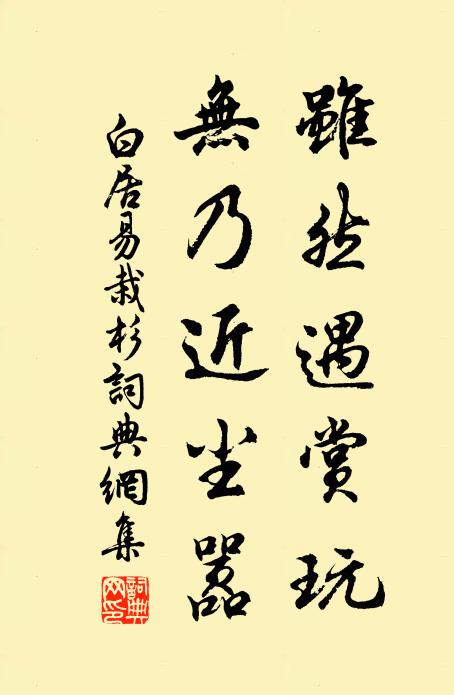 雖然遇賞玩
無乃近尘囂
白居易栽杉詞典網集
詞典网印